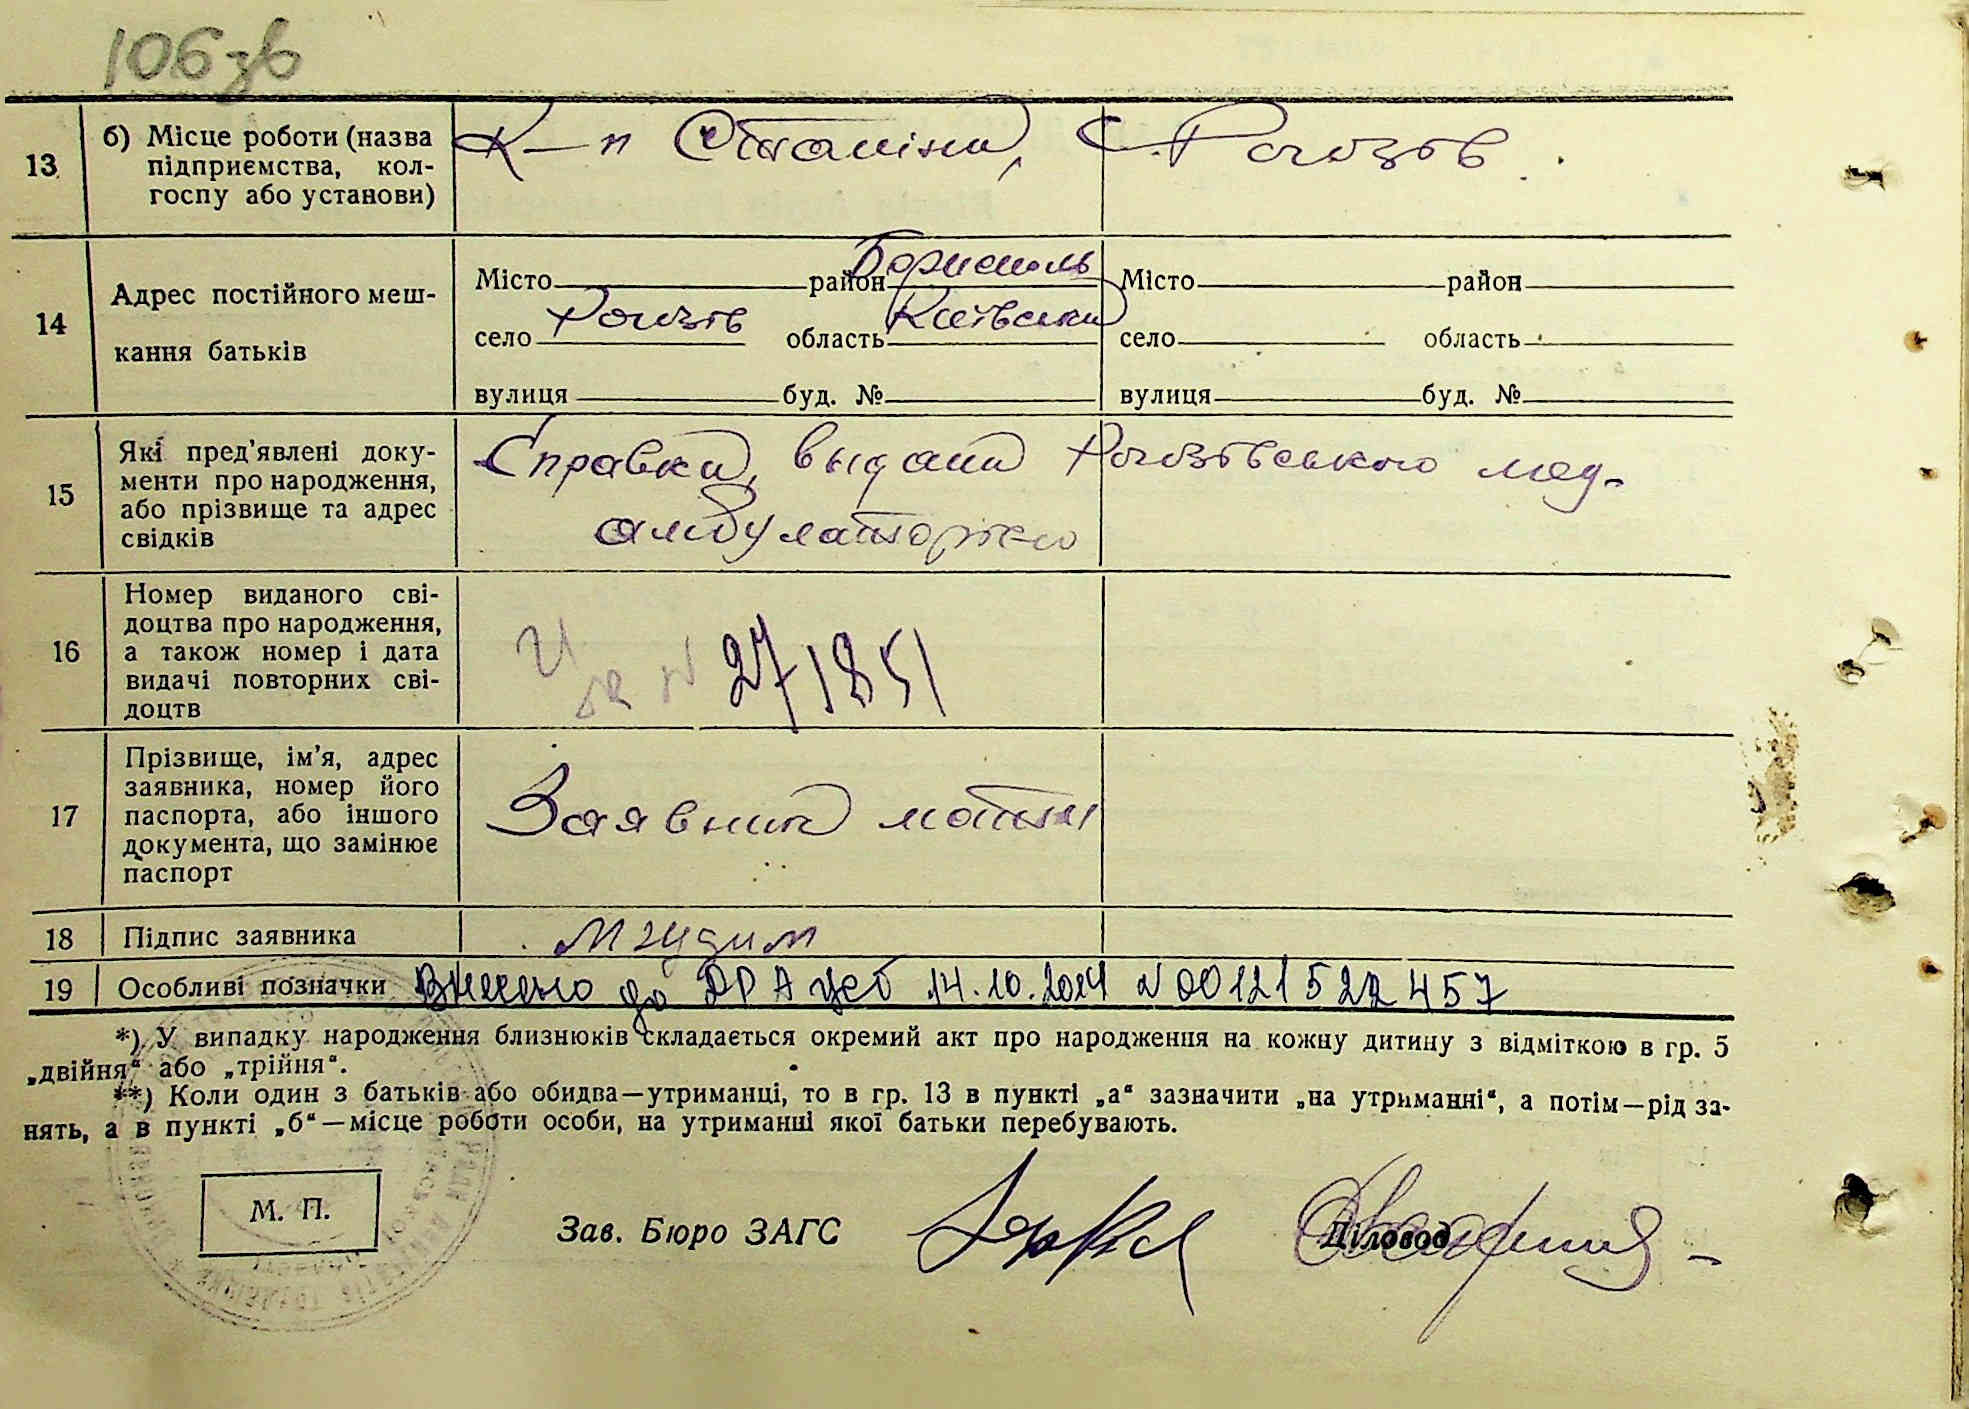 106 зв
13
б) Місце роботи (назва
підприємства, кол-
госпу або установи)
К-п Сталіна, с. Рогозів.
14
Адрес постійного меш-
кання батьків
Місто район Бориспол
село Рогозів область Київська
вулиця буд. №
Місто район
село область
вулиця буд. №
15
Які пред'явлені доку-
менти про народження,
або прізвище та адрес
свідків
Справка, выдана Рогозівського мед.
амбулаторією
16
Номер виданого сві-
доцтва про народження,
а також номер і дата
видачі повторних сві-
доцтв
№ 271851
17
Прізвище, ім'я, адрес
заявника, номер його
паспорта, або іншого
документа, що замінює
паспорт
Заявила мати
18
Підпис заявника
19
Особливі позначки Внесено до ДРАЦСГ 14.10.2024 №00121522457
*) У випадку народження близнюків складається окремий акт про народження на кожну дитину з відміткою в гр. 5
„двійня“ або „трійня“.
**) Коли один з батьків або обидва—утриманці, то в гр. 13 в пункті „а“ зазначити „на утриманні“, а потім—рід за-
нять, а в пункті „б“—місце роботи особи, на утриманні якої батьки перебувають.
М. П.
Зав. Бюро ЗАГС
Діловод